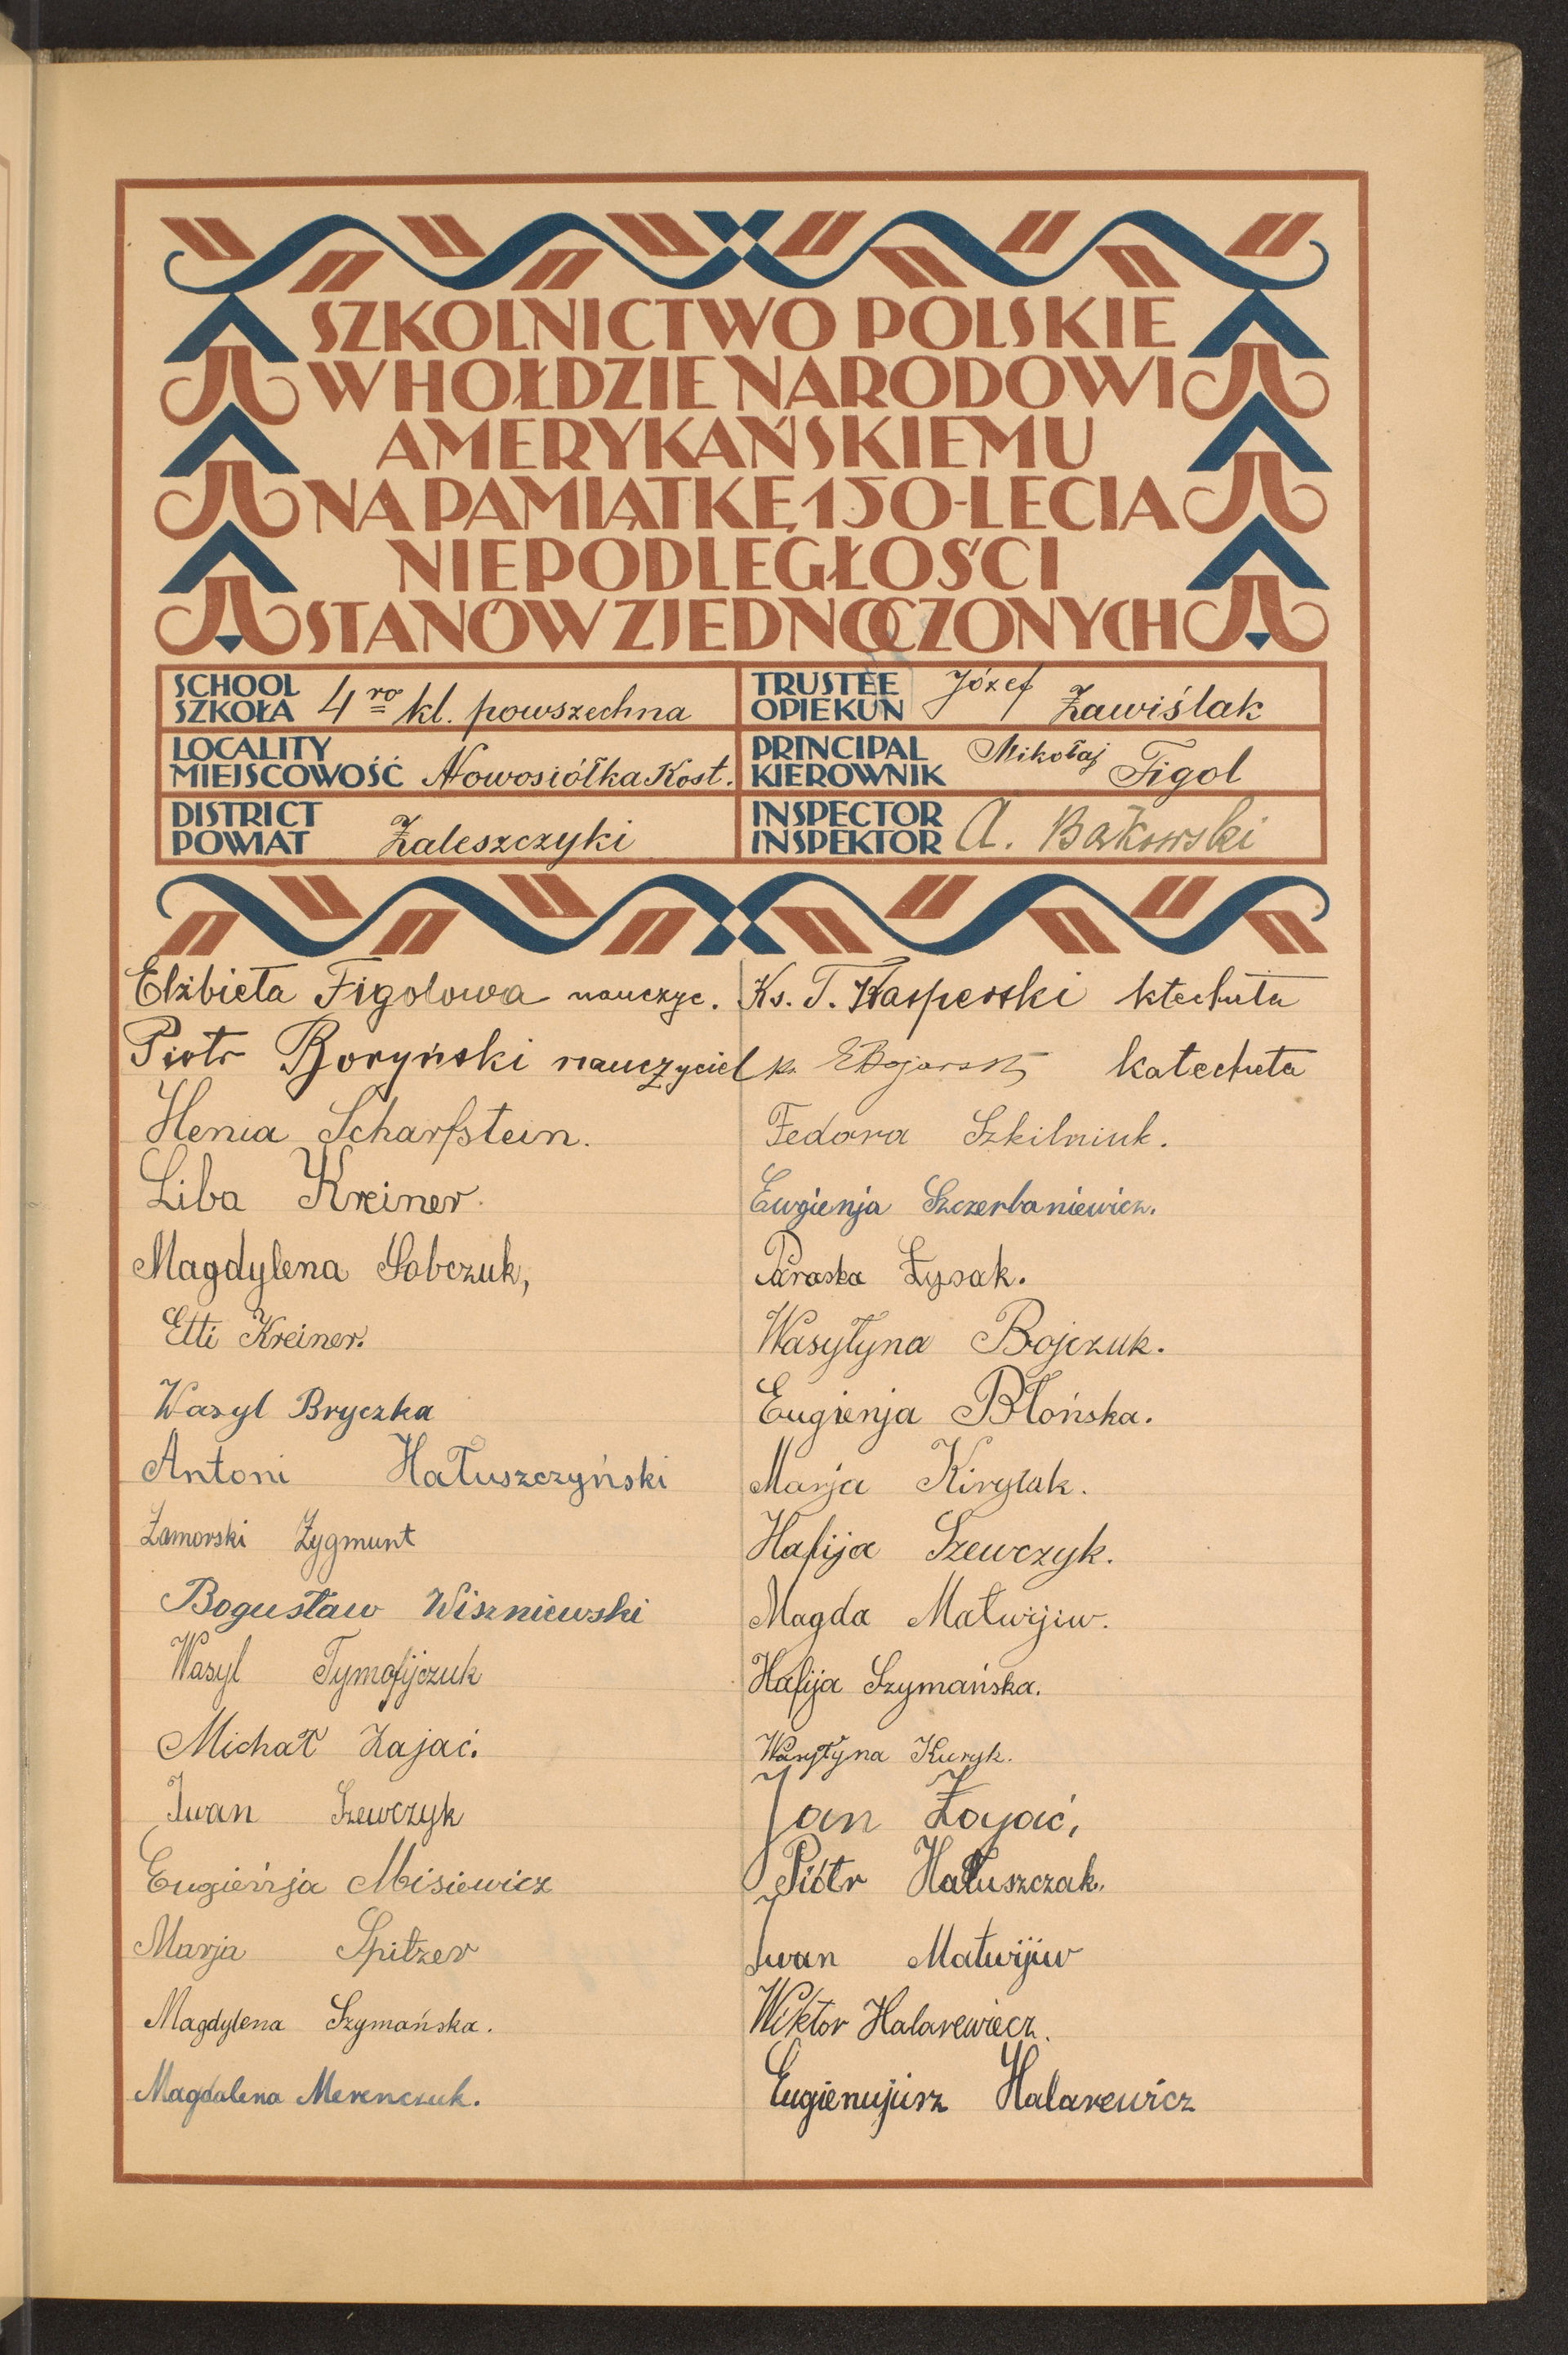 SZKOLNICTWO POLSKIE
W HOŁDZIE NARODOWI
AMERYKAŃSKIEMU
NA PAMIĄTKĘ 150-LECIA
NIEPODLEGŁOŚCI
STANÓW ZJEDNOCZONYCH
SCHOOL
SZKOŁA 4ro kl. powszechna
TRUSTEE
OPIEKUN Józef Zawiślak
LOCALITY
MIEJSCOWOŚĆ Nowosiółka Kost.
PRINCIPAL
KIEROWNIK Mikołaj Figol
DISTRICT
POWIAT Zaleszczyki
INSPECTOR
INSPEKTOR A. Bąkowski
Elżbieta Figolowa nauczyc.
Piotr Boryński nauczyciel
Henia Scharfstein.
Liba Kreiner.
Magdylena Sobczuk,
Etti Kreiner.
Wasyl Bryczka
Antoni Hałuszczyński
Zamorski Zygmunt
Bogusław Wiszniewski
Wasyl Tymofijczuk
Michał Zajać.
Iwan Szewczyk
Eugieńja Misiewicz
Marja Spitzer
Magdylena Szymańska.
Magdalena Merenczuk.
Ks. T. Kasperski ktecheta
ks. katecheta
Fedora Szkilniuk.
Ewgienja Szczerbaniewicz.
Paraska Łysak.
Wasyłyna Bojczuk.
Eugienja Błońska.
Marja Kiryłak.
Hafija Szewczyk.
Magda Matwijiw.
Hafija Szymańska.
Wasyłyna Kuryk.
Jan Zajać,
Piótr Hałuszczak.
Iwan Matwijiw
Wiktor Halarewiecz.
Eugienujusz Halarewicz